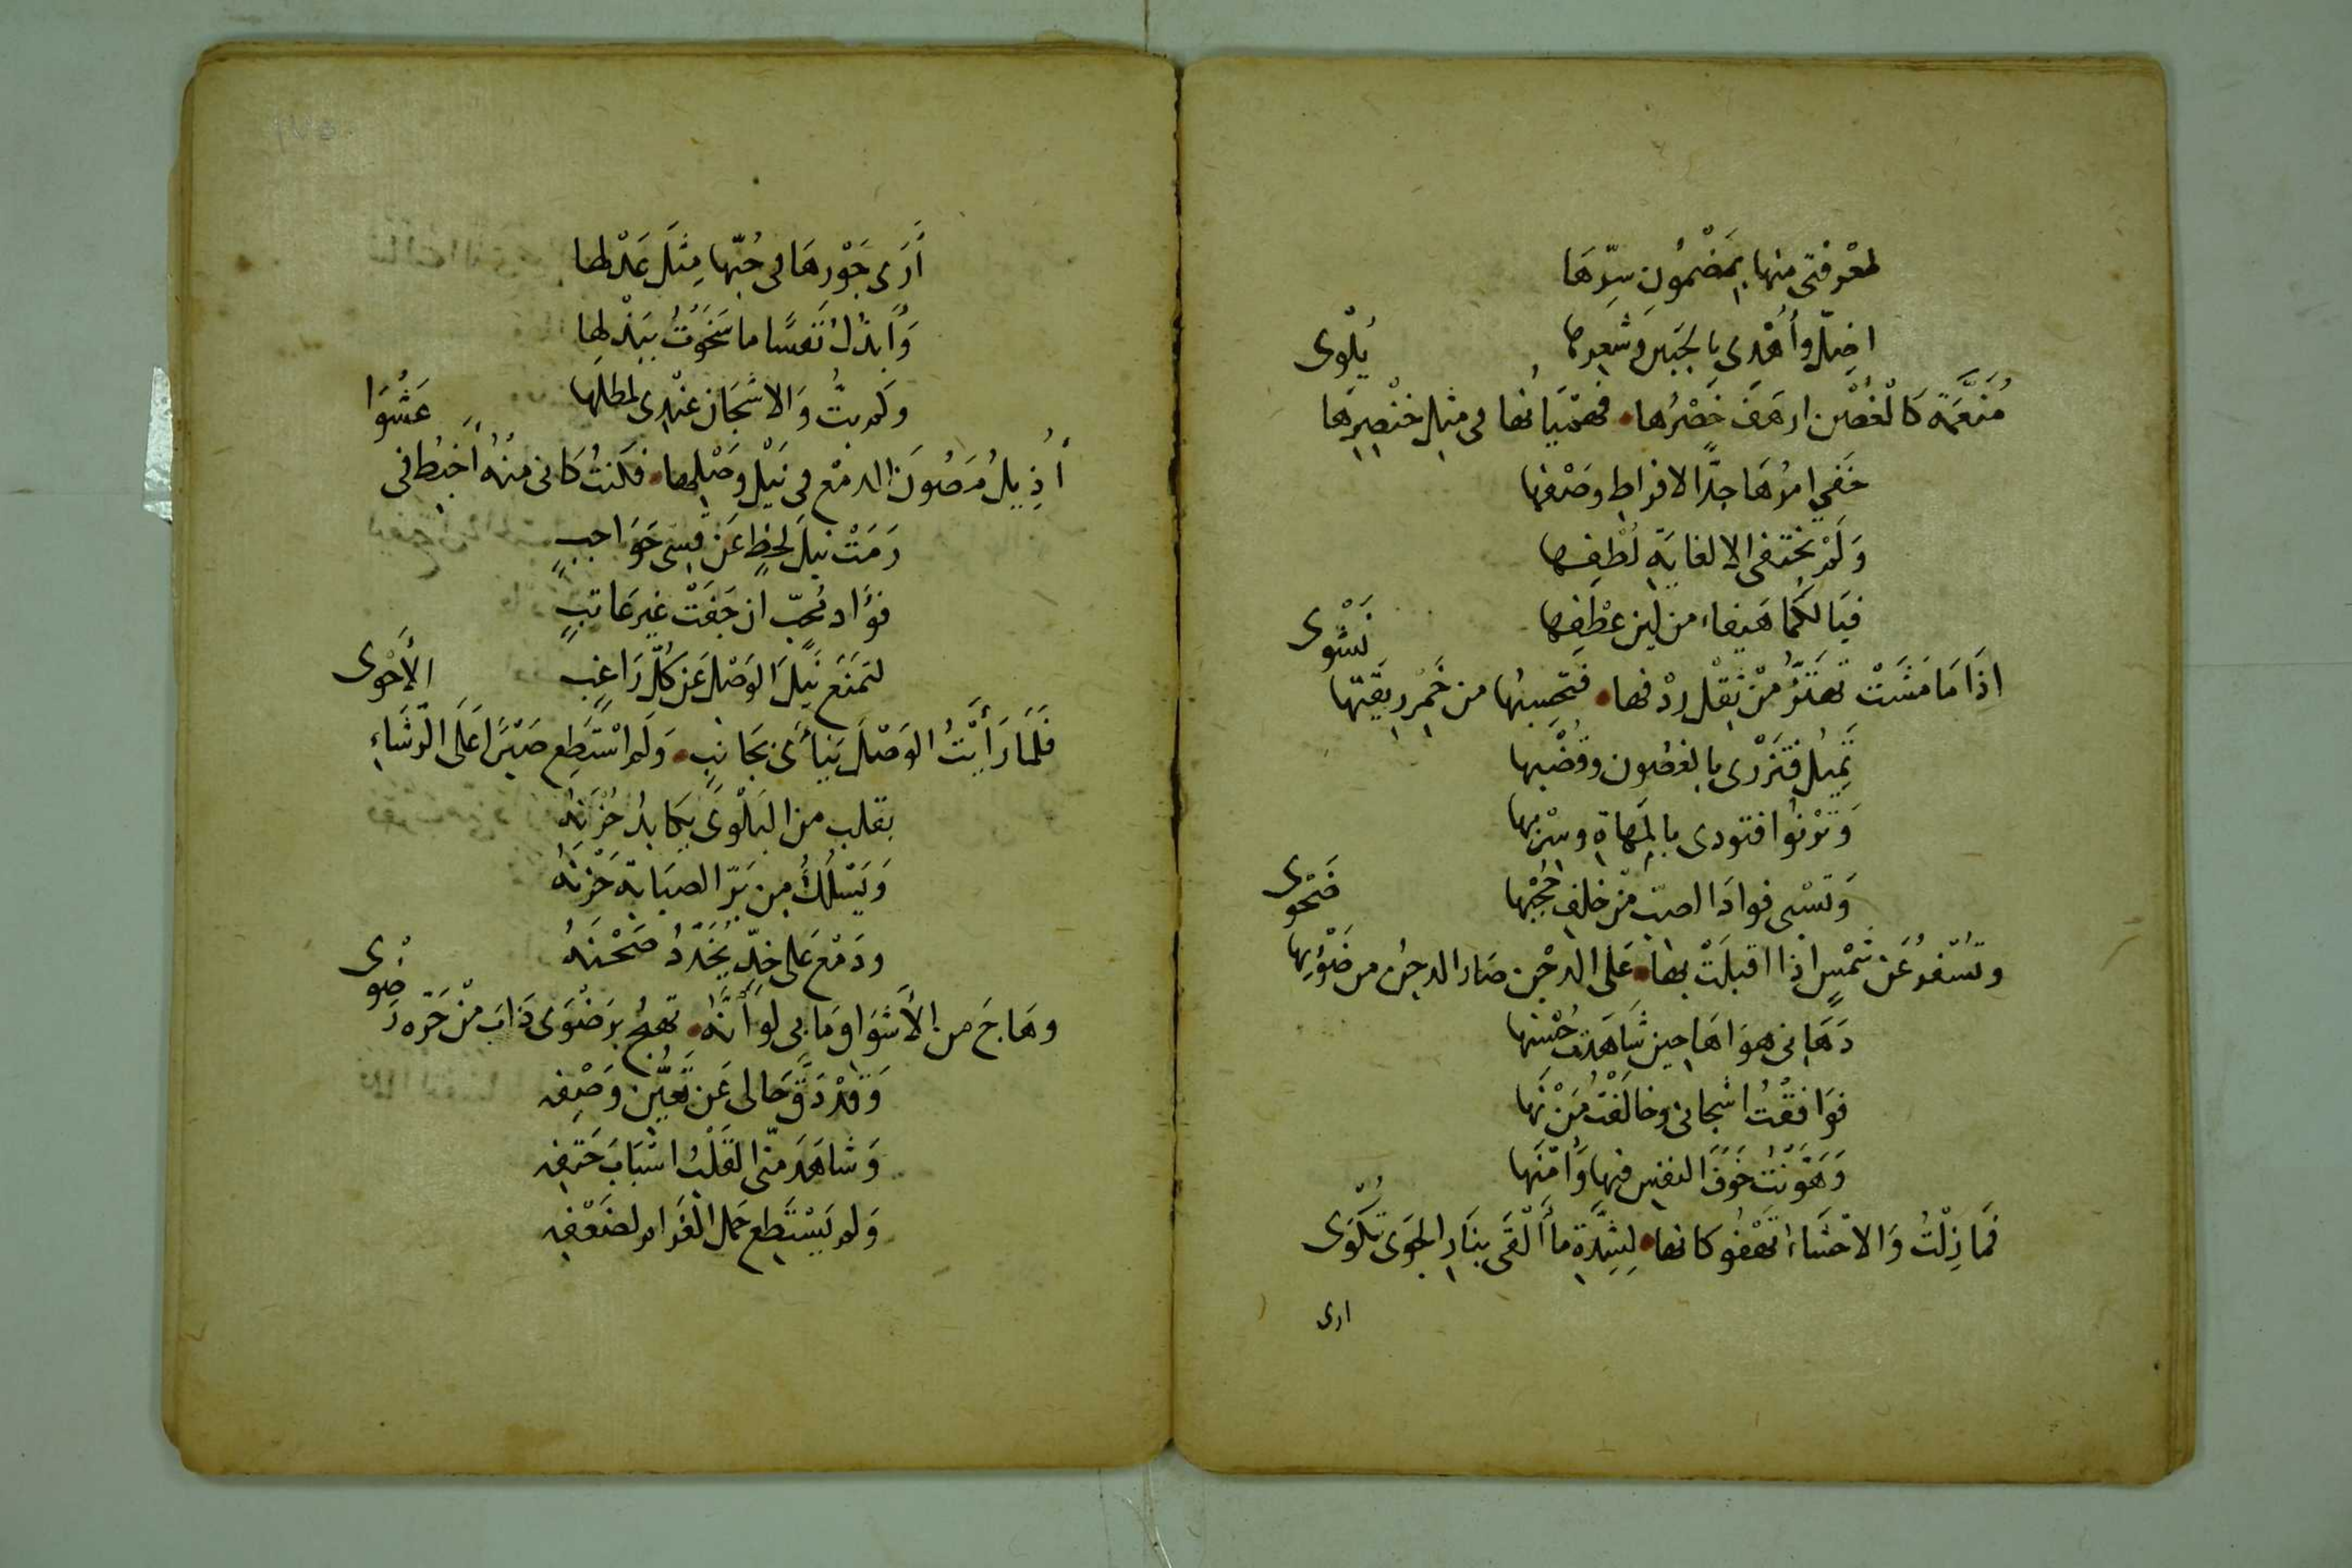 لمعرفتي منها بِمَضْمُونِ سِرِّهَا
اضِلّ وأُهْدى بالجَبين وشعرها
مُنَعَّمَة كَالْغُصْن ارهَفَ خَصْرُها • فهمْيَانُها فى مثِلِ خنْصِرِهَا يُلْوى
خَفي امرُهَا جدًّا لافراطِ وصْفها
وَلَمْ يختفى الا لغايَةِ لُطْفِها
فيَا لكمَا هَيفاء من لِين عِطْفِها
اذَا مَا مَشَتْ تهتَزُّ مْن ثِقْلِ ردْفها • فتحسِبُها من خَمر ريقَتِها نَشْوى
تَمِيلُ فتَزْرى بالغصُون وقُضْبِها
وَتَرْنُوا فتودى بالمَهاةِ وسْربها
وَتَسْبى فوادَ الصبّ مِنْ خلفِ حُجْبِها
وتُسْفرُ عَن شمْسٍ اذا اقبلَتْ بها • عَلى الدجْن صَار الدجنُ من ضَوْئِها ضَحْوى
دَهَانى هوَاهَا حين شَاهَدت حُسْنها
فوَافقْتُ اشجانى وخالَفْتُ مُزْنَها
وَهَوَّنْتُ خَوفَ النفس فيها وَأَمْنَها
فمَا زِلْتُ وَالاحْشَاء تَهْفُو كانها • لِشِدَّةِ ما أَلْقَى بنَارِ الجَوى تُكْوَى
ارى
أَرَى جَوْرهَا فى حُبّها مِثلَ عَدْلها
وَأَبذُلُ نَفسًا ما سَخَوْتُ بِبَذْلِها
وكم بتُّ وَالاشْجَان عنْدِى لمطلها
أُذِيلُ مَصُونَ الدمْع فى نَيْلِ وَصْلها • فكنتُ كَانى منْهُ أَخبِطُ فى عَشْوَا
رَمَتْ نبلَ لحظٍ عَن قِسِىّ حَوَاجبٍ
فؤَاد مُحبّ ان جَفَتْ غير عَاتبٍ
لتمنَع نَيلَ الوَصْل عَن كُلّ رَاغبٍ
فَلَمَّا رَأَيْتُ الوَصْلَ يَنأَى بجَانِبٍ • وَلم استَطِع صَبْرًا عَلَى الرّشَاءِ الأَحْوى
بقلب من البَلْوَى يكَابدُ حُزْنَهُ
وَيَسْلُكُ من بَرّ الصبَابة حَزْنَهُ
ودَمْع عَلى خدٍّ يُخَدِّدُ صَحْنَهُ
وهَاجَ من الأَشوَاق مَا بى لو أنَّهُ • تهيجُ برَضْوَى ذَابَ مْن حَرّه رَضْوى
وَقَدْ دَقَّ حَالى عَن تَعَيُّنِ وَصْفِه
وَشَاهَدَ منّى القَلْبُ اسْبَابَ حَتفِه
وَلم يَسْتَطِع حَمل الغَرَام لضَعْفِه